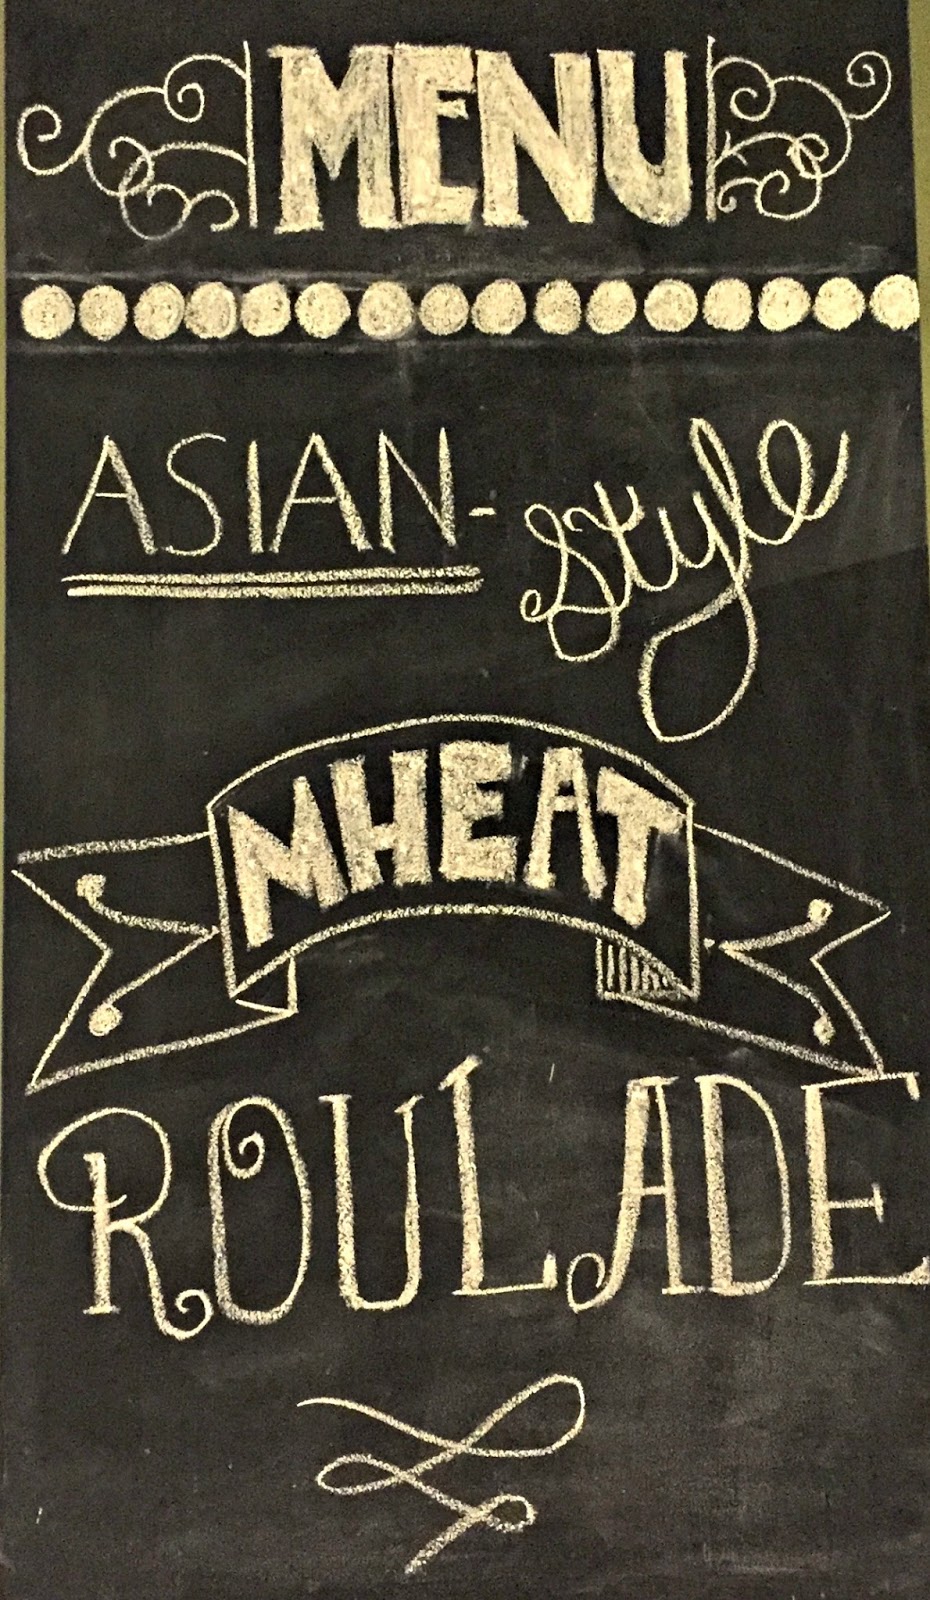 MENU
ASIAN-style
MHEAT
ROULADE